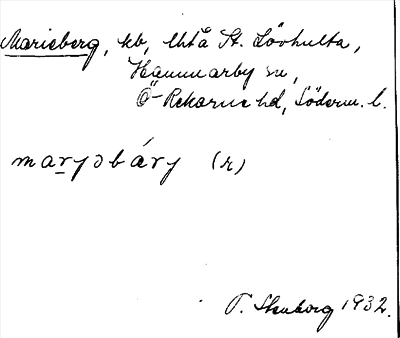 Marieberg, kb, Uhtå St. Lövhulta,
Hammarby sn,
Ö-Rekarne hd, Söderm. l.
maryɔbáry (r)
T. Stenborg 1932.